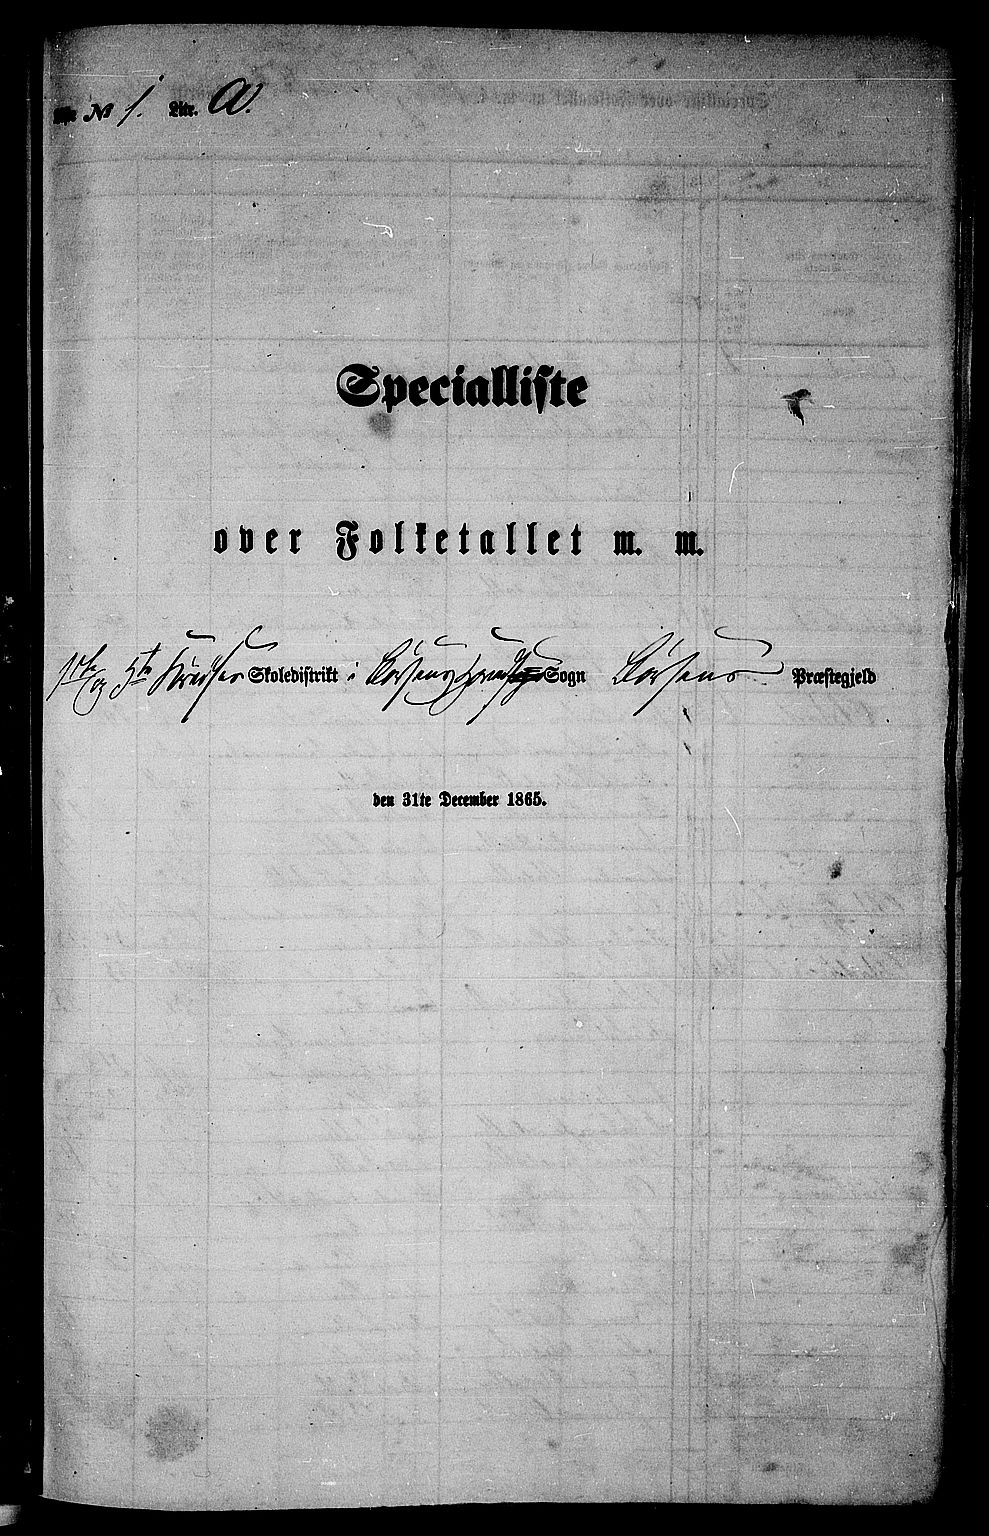 № 1. Litr. A.
Specialliste
over Folketallet m. m.
1ste og 5te Skoledistrikt i Børsens Sogn Børsens Præstegjeld
den 31te December 1865.